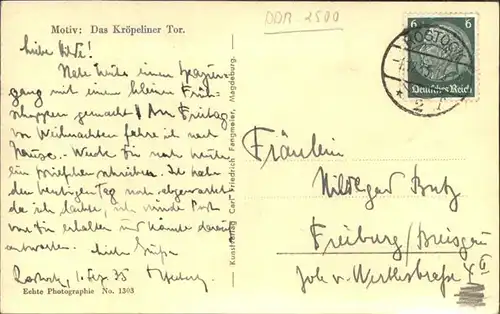 Motiv: Das Kröpeliner Tor.
DDR-2500
Liebe
Habe heute einen Spazier-
gang mit einem kleinen Früh-
schoppen gemacht! Am Freitag
vor Weihnachten fahre ich nach
Hause. - Werde Dir noch heute
ein Brieflein schreiben. Ich habe
den heutigen Tag noch abgewartet
da ich dachte, ich würde Post
von Dir erhalten und könnte darauf
antworten. Grüße
Rostock, 1. Dez. 35
Echte Photographie No. 1303
Kunstverlag Carl Friedrich Fangmeier, Magdeburg.
6 6
Deutsches Reich
ROSTOCK
2
Fräulein
Hildegard Butz
Freiburg/Breisgau
Joh. v. Werthstraße 4